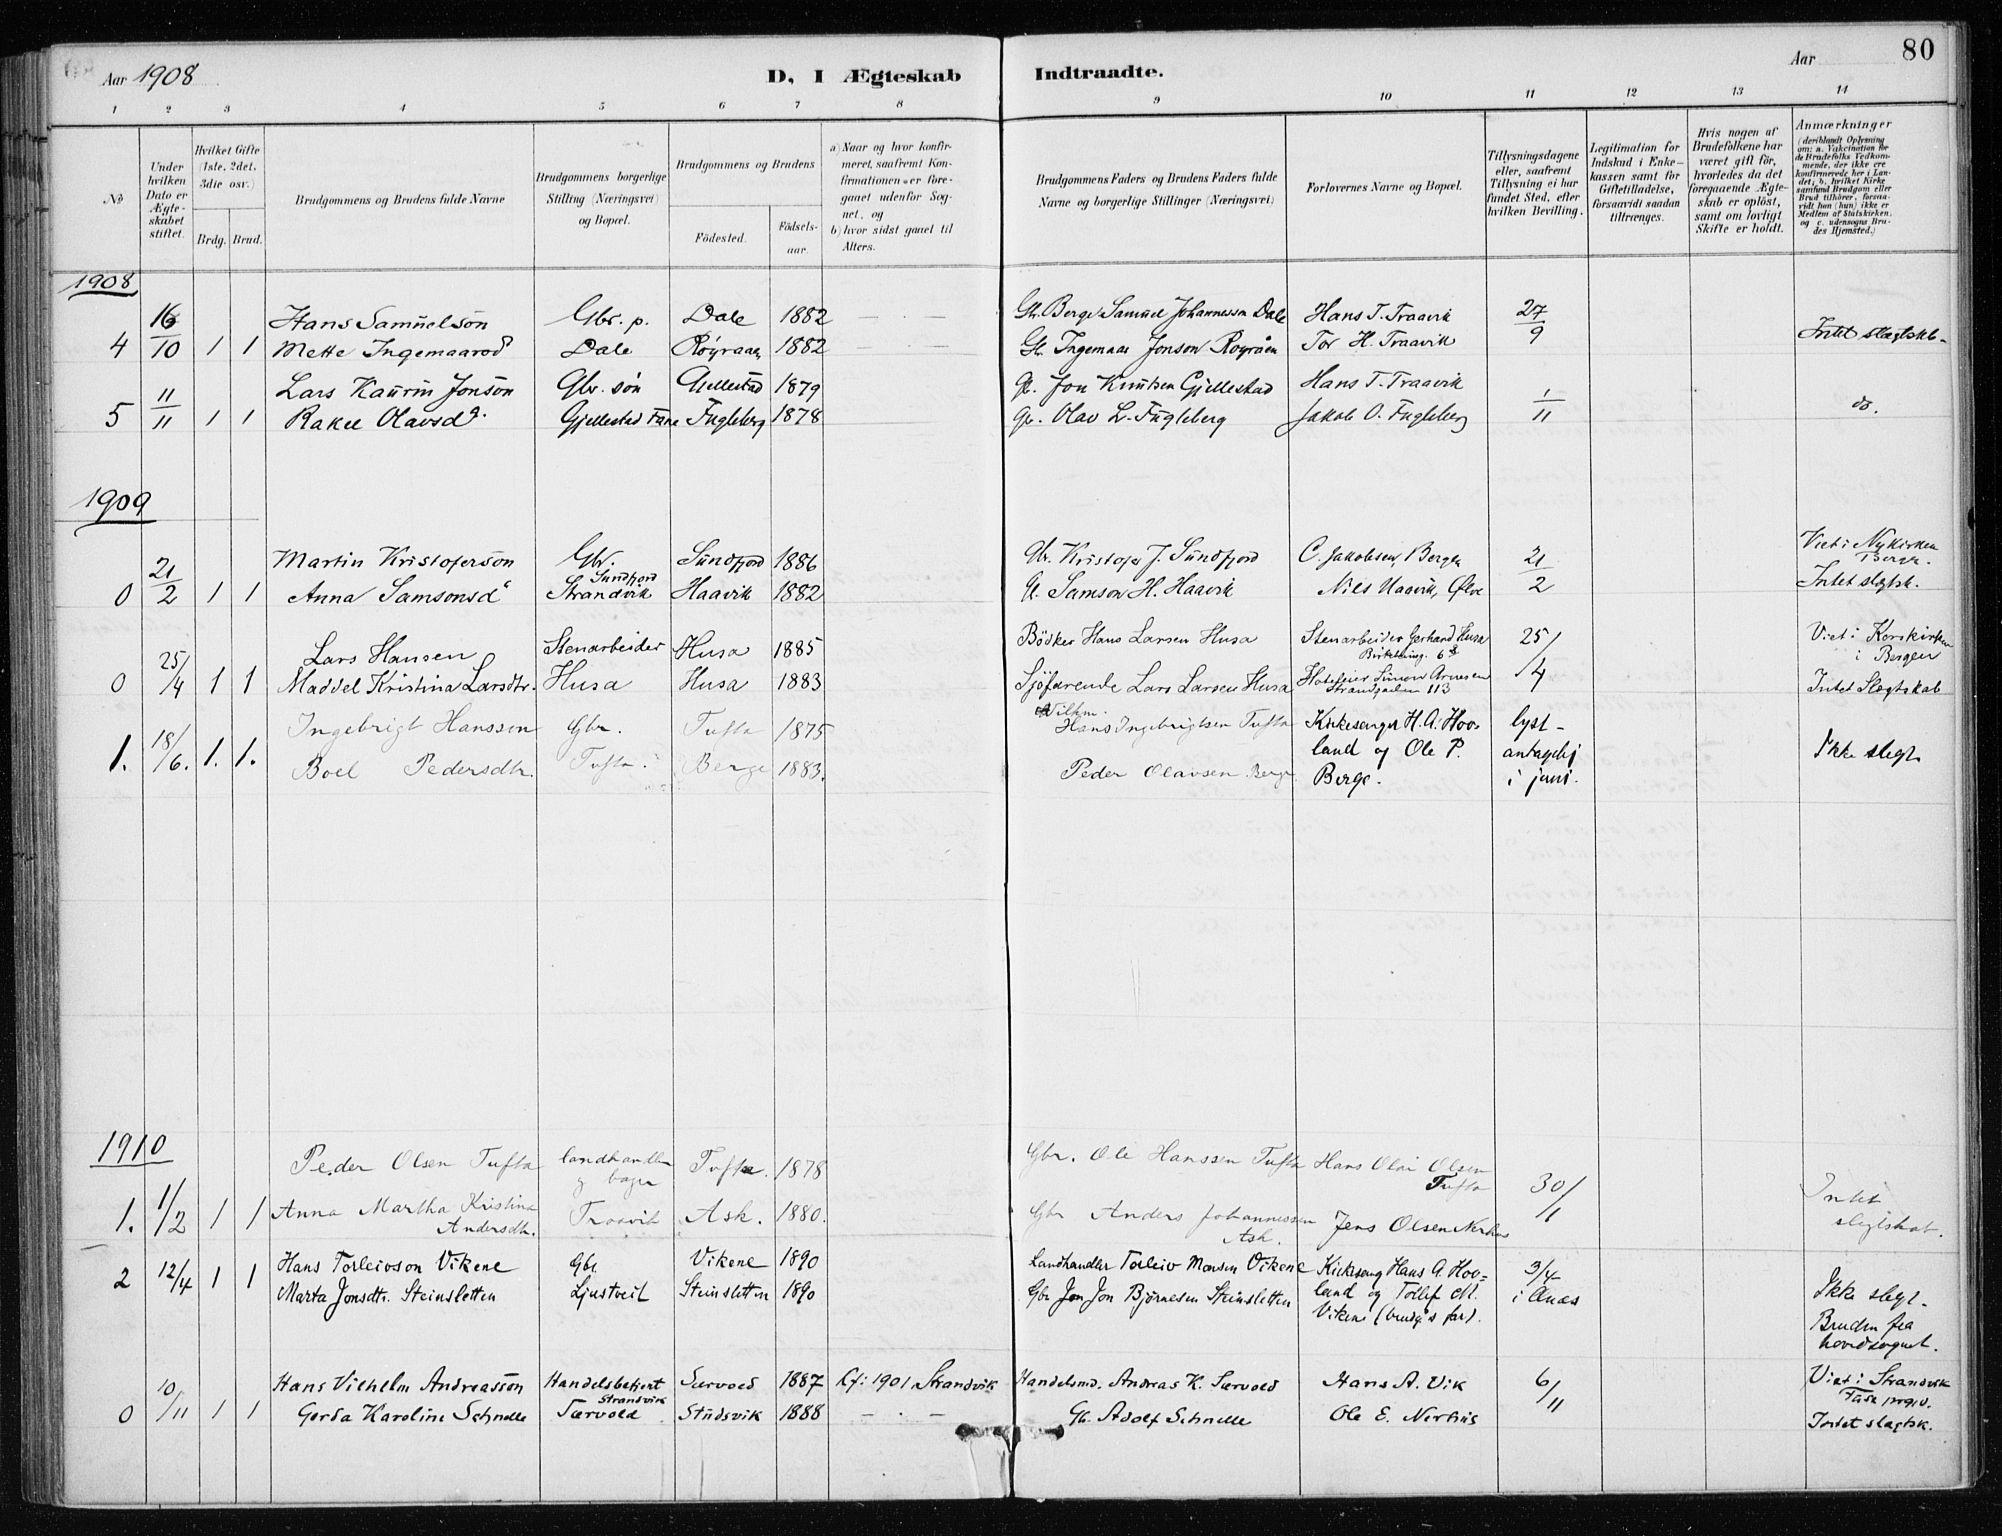 Aar 1908
D, I Ægteskab Indtraadte.
Aar 80
1 2 3 4 5 6 7 8 9 10 11 12 13 14
No
Under hvilken Dato er Ægteskabet stiftet.
Hvilket Gifte (1ste, 2det, 3die osv.)
Brdg. Brud.
Brudgommens og Brudens fulde Navne
Brudgommens borgerlige Stilling (Næringsvei) og Bopæl.
Brudgommens og Brudens
Födested. Födselsaar.
a) Naar og hvor konfirmeret, saafremt Konfirmationen er foregaaet udenfor Sognet, og
b) hvor sidst gaaet til Alters.
Brudgommens Faders og Brudens Faders fulde Navne og borgerlige Stillinger (Næringsvei)
Forlovernes Navne og Bopæl.
Tillysningsdagene eller, saafremt Tillysning ei har fundet Sted, efter hvilken Bevilling.
Legitimation for Indskud i Enkekassen samt for Giftetilladelse, forsaavidt saadan tiltrænges.
Hvis nogen af Brudefolkene har været gift för, hvorledes da det foregaaende Ægteskab er oplöst, samt om lovligt Skifte er holdt.
Anmærkninger (deriblandt Oplysning om: a. Vakcination for de Brudefolks Vedkommende, der ikke ere konfirmerede her i Landet; b. hvilket Kirkesamfund Brudgom eller Brud tilhörer, forsaavidt han (hun) ikke er Medlem af Statskirken, og c. udensogns Brudes Hjemsted.)
1908
16 Hans Samuelsön Gbr. p. Dale 1882 Berge Samuel Johannessen Dale Hans T. Traavik 27
4 10 1 1 Mette Ingemaarsd Dale Röyraaen 1882 G. Ingemaar Jonson Royråen Tor H. Traavik 9 Intet slægtsk.
11 Lars Kaurin Jonsön Gbr. søn Gjellestad 1879 G. Jon Knutsen Gjellestad Hans T. Traavik 1
5 11 1 1 Rakel Olavsd. Gjellestad Fane Fugleberg 1878 G. Olav L. Fugleberg Jakob O. Fugleberg 11 do.
1909
21 Martin Kristoferson Gbr. Sundfjord Sundfjord 1886 Gbr. Kristofer J. Sundfjord C. Jakobsen, Bergen 21 Viet i Nykirken Bergen.
0 2 1 1 Anna Samsonsd Strandvik Haavik 1882 G. Samson H. Haavik Nils Haavik, Ølve 2 Intet slegtsk.
25/ Lars Hansen Stenarbeider Husa 1885 Bödker Hans Larsen Husa Stenarbeider Gerhard Husa 25/ Viet i Korskirken i Bergen
0 /4 1 1 Maddel Kristina Larsdtr. Husa Husa 1883 Sjöfarende Lars Larsen Husa Simon Arnesen Strandgaden 113 /4 Intet Slegtskab
18/ Ingebrigt Hanssen Gbr. Tufta 1875 Hans Ingebrigtsen Tufta Kirkesanger H. A. Hovland og Ole P. Berge. lyst
1. /6. 1. 1. Boel Pedersdtr. Tufta Berge 1883. Peder Olavsen Berge i juni. Ikke slegt
1910
1/ Peder Olsen Tufta landhandler og bager Tufta. 1878 Gbr. Ole Hanssen Tufta Hans Olai Olsen Tufta 30/
1. /2 1 1 Anna Martha Kristina Andersdtr. Traavik Ask. 1880. Gbr Anders Johannessen Ask. Jens Olsen Nerhus /1 Intet slegtskab.
2 12/4 1 1 Hans Torleivson Vikene Gbr. Vikene 1890 Landhandler Torleiv Monsen Vikene Kirkesang Hans A. Hovland og Tollef M. Vikene (brudg's far). 3/4
Marta Jonsdtr. Steinsletten Ljustveit Steinsletten 1890 Gbr Jon Jon Björnesen Steinsletten i Ænæs Ikke slegt. Bruden fra hovedsognet.
10/ Hans Vilhelm Andreassön Handelsbetjent Strandvik Særvold 1887 Kf. 1901 Strandvik Handelsmd. Andreas K. Særvold Hans A. Vik 6/ Viet i Strandvik Fuse prgjd.
0 /11 1 1 Gerda Karoline Schnelle Særvold Studsvik 1888 G. Adolf Schnelle Ole E. Nerhus /11 Intet slagtsk.